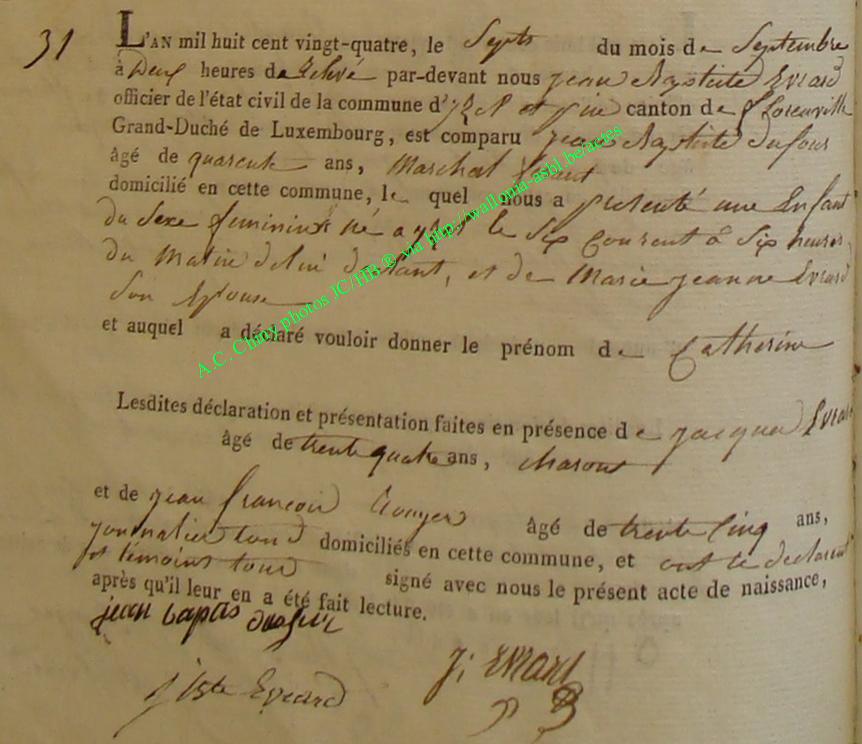 31
L'AN mil huit cent vingt-quatre, le Septs du mois de Septembre
à Deux heures de Relevé par-devant nous jean Baptiste Evrard
officier de l'état civil de la commune d' et canton de florenville
Grand-Duché de Luxembourg, est comparu jean Baptiste dufour
âgé de quarente ans, Marchal
domicilié en cette commune, le quel nous a presenté une Enfant
du Sexe feminin né a le Six Courent à Six heures
du Matin delui d'Clarant, et de Marie jeanne Evrard
Son Epouse
et auquel a déclaré vouloir donner le prénom de Catherine
Lesdites déclaration et présentation faites en présence de jacques Evrard
âgé de trente quatre ans, charon
et de jean françois âgé de trente Cinq ans,
journalier tous domiciliés en cette commune, et ont le declarant
et témoins tous signé avec nous le présent acte de naissance,
après qu'il leur en a été fait lecture.
jean bapts dufour
J: EVRARD
j bste Evrard
A.C. Chiny photos JC/HB ® via http://wallonia-asbl.be/actes